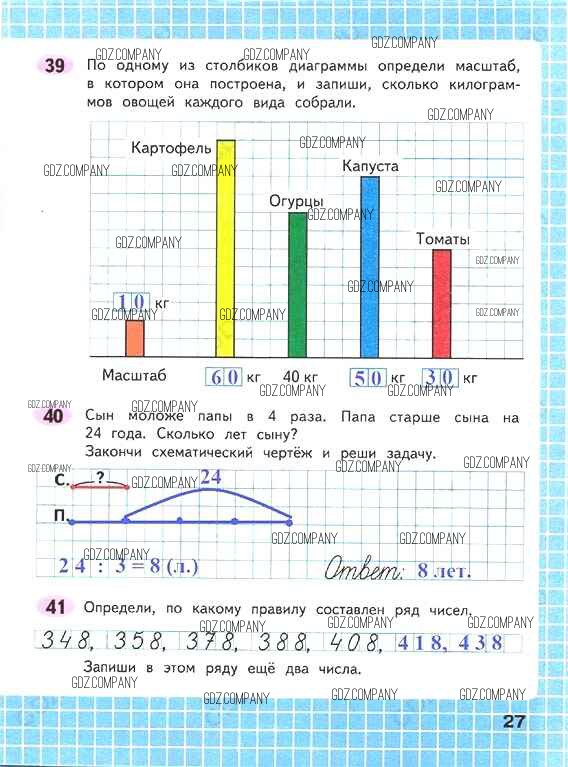 GDZ.COMPANY GDZ.COMPANY
39 По одному из столбиков диаграммы определи масштаб,
в котором она построена, и запиши, сколько килограм-
мов овощей каждого вида собрали.
GDZ.COMPANY
Картофель
Капуста
GDZ.COMPANY GDZ.COMPANY GDZ.COMPANY
Огурцы
GDZ.COMPANY
Томаты
GDZ.COMPANY
GDZ.COMPANY
GDZ.COMPANY
10 кг
GDZ.COMPANY GDZ.COMPANY GDZ.COMPANY
Масштаб 60 кг 40 кг 50 кг 30 кг
GDZ.COMPANY GDZ.COMPANY GDZ.COMPANY GDZ.COMPANY
40 Сын моложе папы в 4 раза. Папа старше сына на
24 года. Сколько лет сыну?
Закончи схематический чертёж и реши задачу.
GDZ.COMPANY GDZ.COMPANY
С. ? 24
GDZ.COMPANY
П.
GDZ.COMPANY GDZ.COMPANY
24 : 3 = 8 (л.) Ответ: 8 лет.
GDZ.COMPANY
41 Определи, по какому правилу составлен ряд чисел.
GDZ.COMPANY GDZ.COMPANY GDZ.COMPANY
348, 358, 378, 388, 408, 418, 438
GDZ.COMPANY GDZ.COMPANY
Запиши в этом ряду ещё два числа.
GDZ.COMPANY
GDZ.COMPANY GDZ.COMPANY GDZ.COMPANY
27